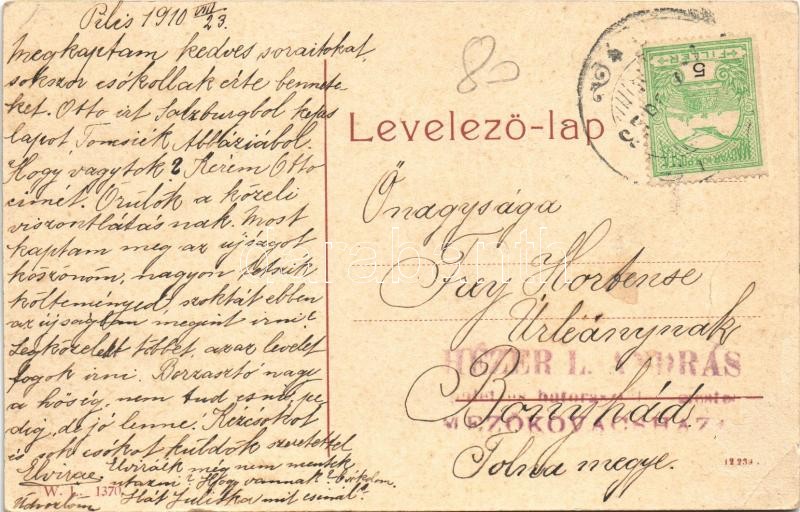 Pilis 1910 VIII/23.
Megkaptam kedves soraitokat,
sokszor csókollak érte bennete-
ket. Otto irt Salzburgbol képes
lapot, Tomsiék Abbáziából.
Hogy vagytok? Kérem Otto
cimét. Örülök a közeli
viszontlátásnak. Most
kaptam meg az ujságot
köszönöm, nagyon tetszik
költeményed, szoktál ebben
az ujságban megint irni?
Legközelebb többet, azaz levelet
fogok irni. Borzasztó nagy
a hőség, nem tud esni, pe-
dig de jó lenne. Kézcsókot
és sok csókot küldök szeretettel
Elvira
Elviráék még nem mentek
utazni? Hogy vannak? Csókolom.
Hát Juliska mit csinál?
W. L. 1370
80
Levelező-lap
Önagysága
Frey Hortense
Úrleánynak
Bonyhád
Tolna megye.
HÉZER L. ANDRÁS
MEZŐKOVÁCSHÁZA
MAGYAR KIR. POSTA
5
FILLÉR
darabanth